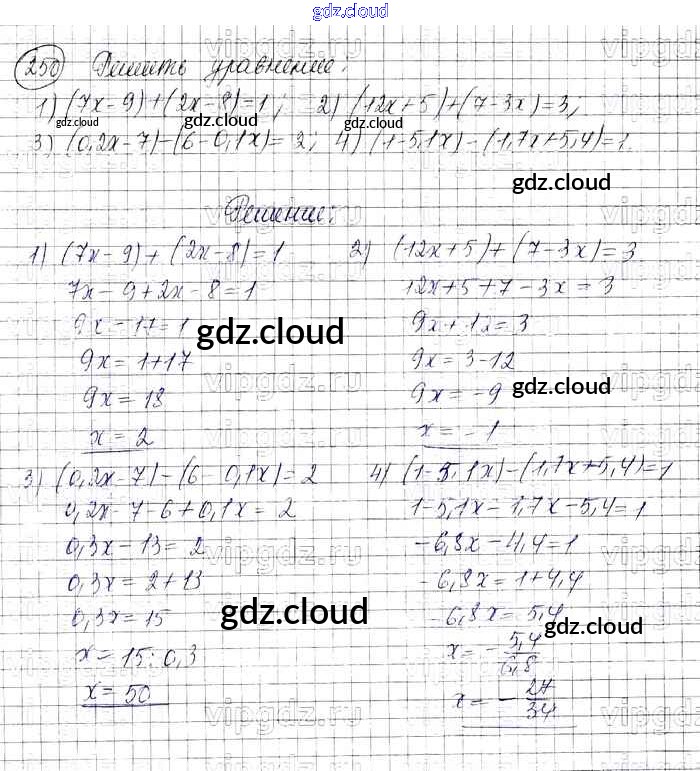 gdz.cloud
250 Решить уравнение:
1) (7x-9)+(2x-8)=1; 2) (12x+5)+(7-3x)=3;
gdz.cloud gdz.cloud
3) (0,2x-7)-(6-0,1x)=2; 4) (1-5,1x)-(1,7x+5,4)=1.
gdz.cloud gdz.cloud
Решение:
1) (7x-9)+(2x-8)=1
7x-9+2x-8=1
9x-17=1
gdz.cloud
9x=1+17
9x=18
x=2
2) (12x+5)+(7-3x)=3
12x+5+7-3x=3
9x+12=3
9x=3-12
9x=-9
gdz.cloud
x=-1
3) (0,2x-7)-(6-0,1x)=2
0,2x-7-6+0,1x=2
0,3x-13=2
0,3x=2+13
0,3x=15
gdz.cloud
x=15:0,3
x=50
4) (1-5,1x)-(1,7x+5,4)=1
1-5,1x-1,7x-5,4=1
-6,8x-4,4=1
-6,8x=1+4,4
-6,8x=5,4
gdz.cloud
x=-5,4/6,8
x=-27/34
vipgdz.ru